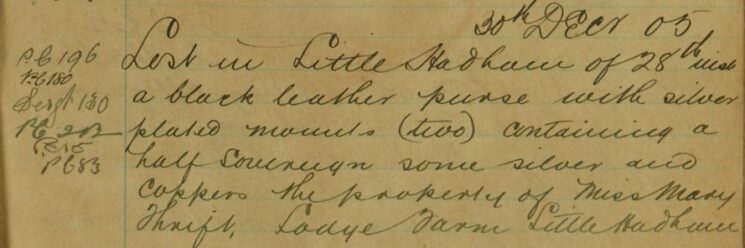 30th Decr 05
PC 196
PC 180
Sergt 130
PC 202
PC 83
Lost in Little Hadham of 28th inst
a black leather purse with silver
plated mounts (two) containing a
half Sovereign some silver and
coppers the property of Miss Mary
Thrift, Lodge Farm Little Hadham